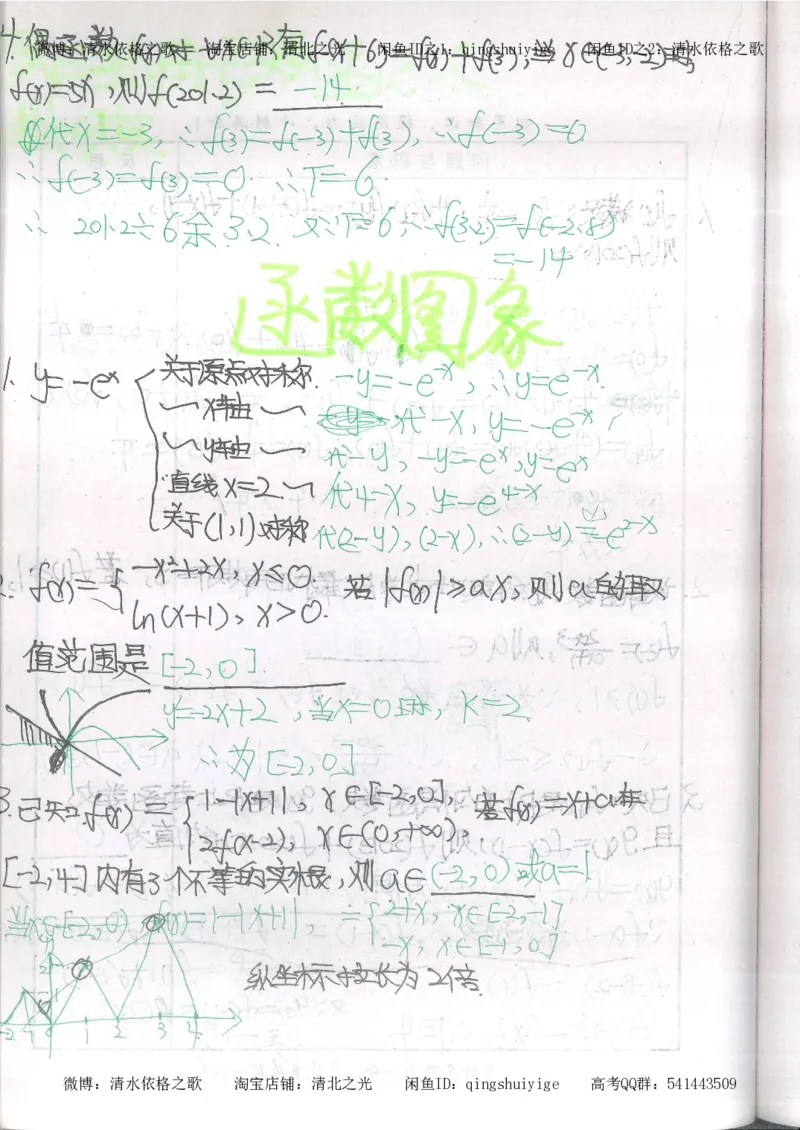 微博：清水依格之歌 淘宝店铺：清北之光 闲鱼ID之1：qingshuiyige 闲鱼ID之2：清水依格之歌
4. 偶函数f(x)对 有f(x+6)=f(x)+f(3),当x∈(-3,-2)时,
f(x)=5x,则f(201.2)= -14
代x=-3,∴f(3)=f(-3)+f(3),∴f(-3)=0
∴f(-3)=f(3)=0 ∴T=6
∴ 201.2÷6余3.2. 又∵T=6,∴f(3.2)=f(-2.8)
=-14
函数图象
1. y=-eˣ 关于原点对称. -y=-e⁻ˣ, ∴y=e⁻ˣ.
~ x轴 ~ 代-x, y=-e⁻ˣ
~ y轴 ~ 代-y, -y=-eˣ, y=eˣ
直线x=2 ~ 代4-x, y=-e⁴⁻ˣ
关于(1,1)对称 代(2-y),(2-x),∴(2-y)=-e²⁻ˣ
2. f(x)={-x²+2x, x≤0. 若|f(x)|≥ax,则a的取
ln(x+1), x>0.
值范围是 [-2,0].
y=-2x+2,当x=0时, k=2.
∴为[-2,0]
3. 已知f(x)={1-|x+1|, x∈[-2,0], 若f(x)=x+a在
2f(x-2), x∈(0,+∞),
[-2,4]内有3个不等的实根,则a∈(-2,0)或a=1
当x∈[-2,0) f(x)=1-|x+1|, ={2+x, x∈[-2,-1]
-x, x∈[-1,0]
2
纵坐标拉长为2倍.
-2 -1 0 1 2 3 4
微博：清水依格之歌 淘宝店铺：清北之光 闲鱼ID：qingshuiyige 高考QQ群：541443509